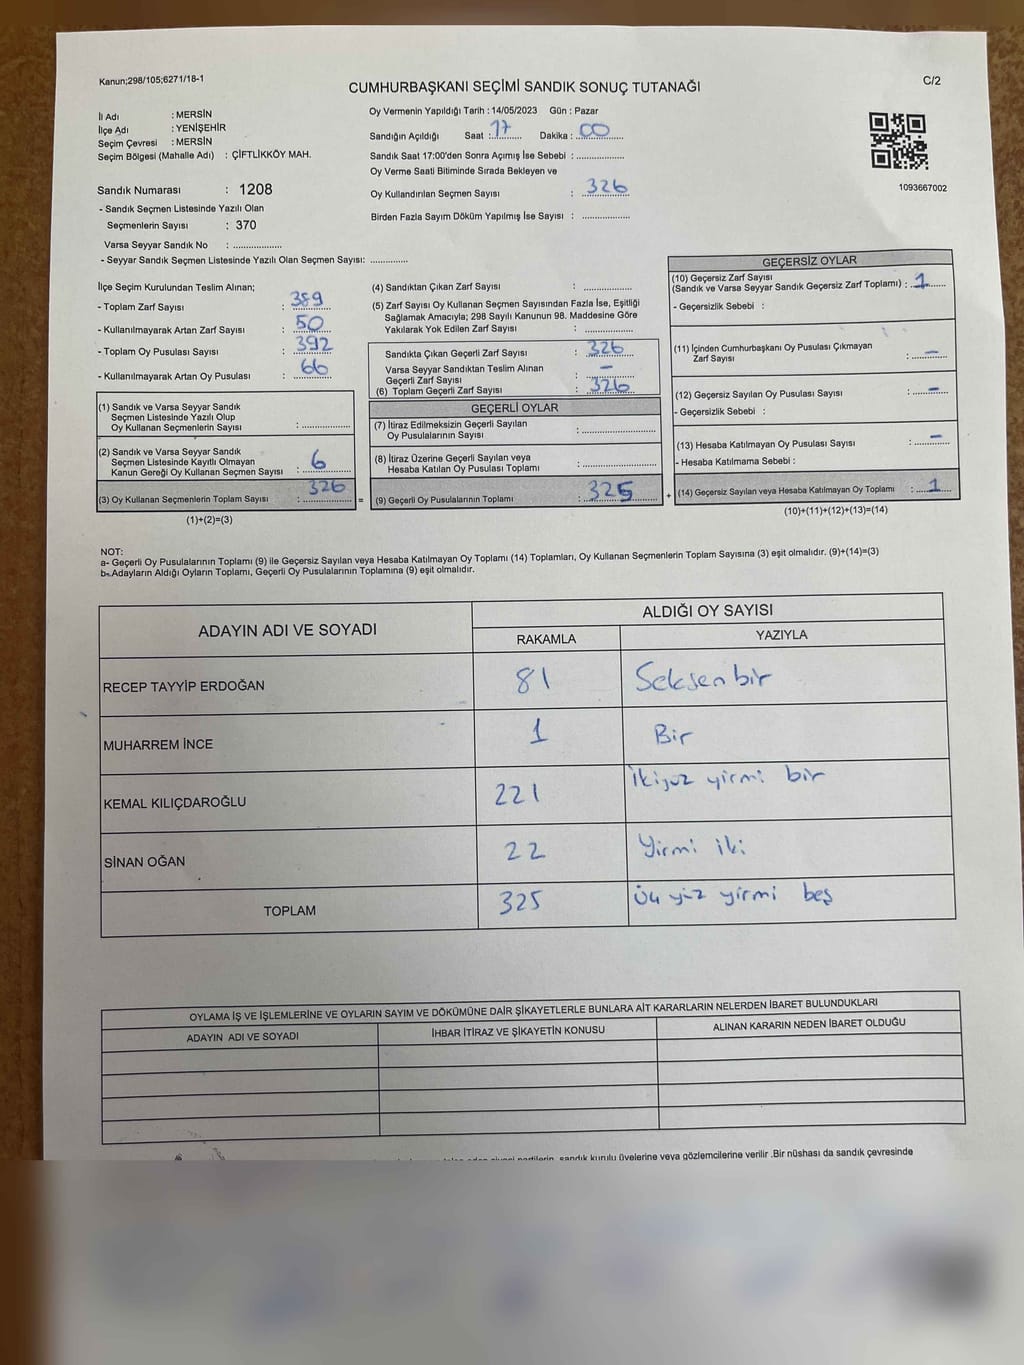 Kanun;298/105;6271/18-1
C/2
CUMHURBAŞKANI SEÇİMİ SANDIK SONUÇ TUTANAĞI
İl Adı : MERSİN
İlçe Adı : YENİŞEHİR
Seçim Çevresi : MERSİN
Seçim Bölgesi (Mahalle Adı) : ÇİFTLİKKÖY MAH.
Oy Vermenin Yapıldığı Tarih : 14/05/2023 Gün : Pazar
Sandığın Açıldığı Saat : 17 Dakika : 00
Sandık Saat 17:00'den Sonra Açımış İse Sebebi : ..................
Oy Verme Saati Bitiminde Sırada Bekleyen ve
Oy Kullandırılan Seçmen Sayısı : 326
Birden Fazla Sayım Döküm Yapılmış İse Sayısı : ..................
1093667002
Sandık Numarası : 1208
- Sandık Seçmen Listesinde Yazılı Olan
Seçmenlerin Sayısı : 370
Varsa Seyyar Sandık No : ..................
- Seyyar Sandık Seçmen Listesinde Yazılı Olan Seçmen Sayısı: ..............
İlçe Seçim Kurulundan Teslim Alınan;
- Toplam Zarf Sayısı : 389
- Kullanılmayarak Artan Zarf Sayısı : 50
- Toplam Oy Pusulası Sayısı : 392
- Kullanılmayarak Artan Oy Pusulası : 66
(1) Sandık ve Varsa Seyyar Sandık
Seçmen Listesinde Yazılı Olup
Oy Kullanan Seçmenlerin Sayısı : ..................
(2) Sandık ve Varsa Seyyar Sandık
Seçmen Listesinde Kayıtlı Olmayan
Kanun Gereği Oy Kullanan Seçmen Sayısı : 6
(3) Oy Kullanan Seçmenlerin Toplam Sayısı : 326 =
(1)+(2)=(3)
(4) Sandıktan Çıkan Zarf Sayısı : ..................
(5) Zarf Sayısı Oy Kullanan Seçmen Sayısından Fazla İse, Eşitliği
Sağlamak Amacıyla; 298 Sayılı Kanunun 98. Maddesine Göre
Yakılarak Yok Edilen Zarf Sayısı : ..................
Sandıkta Çıkan Geçerli Zarf Sayısı : 326
Varsa Seyyar Sandıktan Teslim Alınan
Geçerli Zarf Sayısı : -
(6) Toplam Geçerli Zarf Sayısı : 326
GEÇERLİ OYLAR
(7) İtiraz Edilmeksizin Geçerli Sayılan
Oy Pusulalarının Sayısı : ..................
(8) İtiraz Üzerine Geçerli Sayılan veya
Hesaba Katılan Oy Pusulası Toplamı : ..................
(9) Geçerli Oy Pusulalarının Toplamı : 325 +
GEÇERSİZ OYLAR
(10) Geçersiz Zarf Sayısı
(Sandık ve Varsa Seyyar Sandık Geçersiz Zarf Toplamı) : 1
- Geçersizlik Sebebi :
(11) İçinden Cumhurbaşkanı Oy Pusulası Çıkmayan
Zarf Sayısı : -
(12) Geçersiz Sayılan Oy Pusulası Sayısı : -
- Geçersizlik Sebebi :
(13) Hesaba Katılmayan Oy Pusulası Sayısı : -
- Hesaba Katılmama Sebebi :
(14) Geçersiz Sayılan veya Hesaba Katılmayan Oy Toplamı : 1
(10)+(11)+(12)+(13)=(14)
NOT:
a- Geçerli Oy Pusulalarının Toplamı (9) ile Geçersiz Sayılan veya Hesaba Katılmayan Oy Toplamı (14) Toplamları, Oy Kullanan Seçmenlerin Toplam Sayısına (3) eşit olmalıdır. (9)+(14)=(3)
b- Adayların Aldığı Oyların Toplamı, Geçerli Oy Pusulalarının Toplamına (9) eşit olmalıdır.
ADAYIN ADI VE SOYADI
ALDIĞI OY SAYISI
RAKAMLA YAZIYLA
RECEP TAYYİP ERDOĞAN 81 Seksen bir
MUHARREM İNCE 1 Bir
KEMAL KILIÇDAROĞLU 221 İkiyüz yirmi bir
SİNAN OĞAN 22 Yirmi iki
TOPLAM 325 Üç yüz yirmi beş
OYLAMA İŞ VE İŞLEMLERİNE VE OYLARIN SAYIM VE DÖKÜMÜNE DAİR ŞİKAYETLERLE BUNLARA AİT KARARLARIN NELERDEN İBARET BULUNDUKLARI
ADAYIN ADI VE SOYADI İHBAR İTİRAZ VE ŞİKAYETİN KONUSU ALINAN KARARIN NEDEN İBARET OLDUĞU
sandık kurulu üyelerine veya gözlemcilerine verilir .Bir nüshası da sandık çevresinde